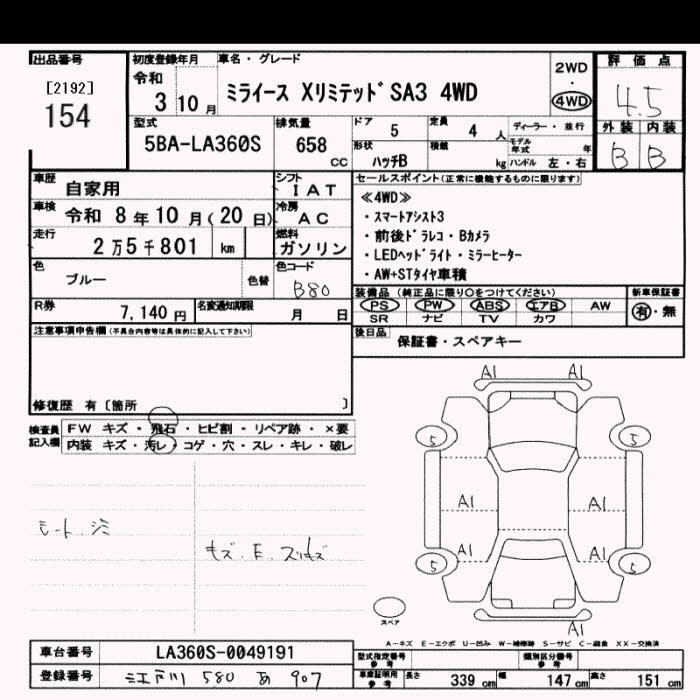 出品番号
[2192]
154
初度登録年月
令和
3 10 月
車名・グレード
ミライース XリミテッドSA3 4WD
2WD
・
4WD
評価点
4.5
外装 内装
B B
型式
5BA-LA360S
排気量
658
cc
ドア
5
定員
4 人
ディーラー・並行
形状
ハッチB
積載
kg
モデル年式
年
ハンドル 左・右
車歴
自家用
シフト
I A T
車検
令和 8 年 10 月 ( 20 日)
冷房
A C
走行
2 万 5 千 801 km
燃料
ガソリン
色
ブルー
色替
色コード
B80
R券
7,140 円
名変通知期限
月 日
セールスポイント(正常に機能するものに限ります)
≪4WD≫
・スマートアシスト3
・前後ドラレコ・Bカメラ
・LEDヘッドライト・ミラーヒーター
・AW+STタイヤ車積
装備品(純正品に限り○をつけてください)
PS PW ABS エアB AW
SR ナビ TV カワ
新車保証書
有・無
後日品
保証書・スペアキー
注意事項申告欄(不具合内容等は具体的に記入して下さい)
修復歴 有〔箇所 〕
検査員記入欄
FW キズ・飛石・ヒビ割・リペア跡・×要
内装 キズ・汚レ・コゲ・穴・スレ・キレ・破レ
シート、シミ
キズ、E、スリキズ
A1 A1
5 5
A1 A1
A1 A1
5 5
A1
スペア
A-キズ E-エクボ U-凹み W-補修跡 S-サビ C-腐食 XX-交換済
車台番号
LA360S-0049191
登録番号
江戸川 580 あ 907
型式指定番号
参考
類別区分番号
参考
車庫証明用
参考
長さ 339 cm 幅 147 cm 高さ 151 cm